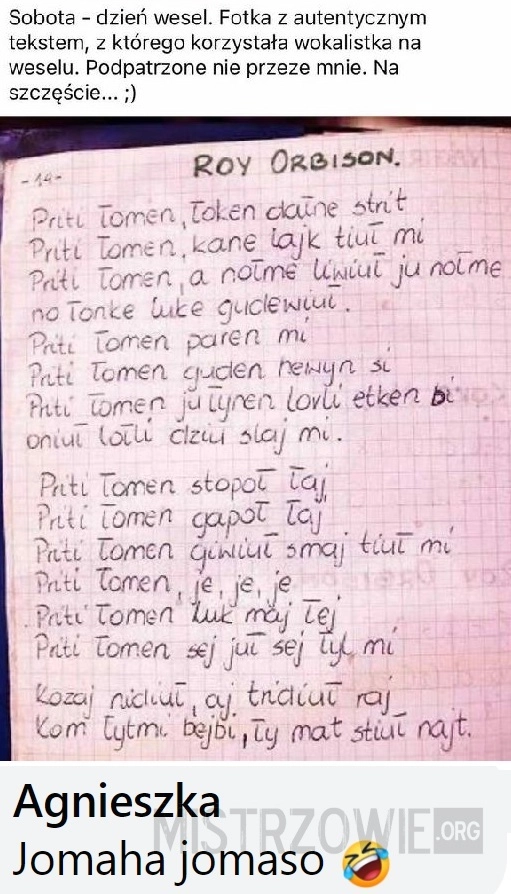 Sobota - dzień wesel. Fotka z autentycznym
tekstem, z którego korzystała wokalistka na
weselu. Podpatrzone nie przeze mnie. Na
szczęście... ;)
-14-
ROY ORBISON.
Priti Łomen, Łoken dałne strit
Priti Łomen, kane łajk tiuł mi
Priti Łomen, a nołme liwiuł ju nołme
no Łonke luke gudewiuł.
Priti Łomen paren mi
Priti Łomen guden hewyn si
Priti Łomen ju łyren lovli etken bi
oniuł lołli dziu slaj mi.
Priti Łomen stopoł łaj
Priti Łomen gapoł łaj
Priti Łomen giwiuł smaj tiuł mi
Priti Łomen, je, je, je
Priti Łomen luk maj łej
Priti Łomen sej juł sej łył mi
Kozaj nidiuł, aj tridiuł raj
Kom łytmi bejbi, ły mat stiuł najt.
Agnieszka
MISTRZOWIE.ORG
Jomaha jomaso 🤣